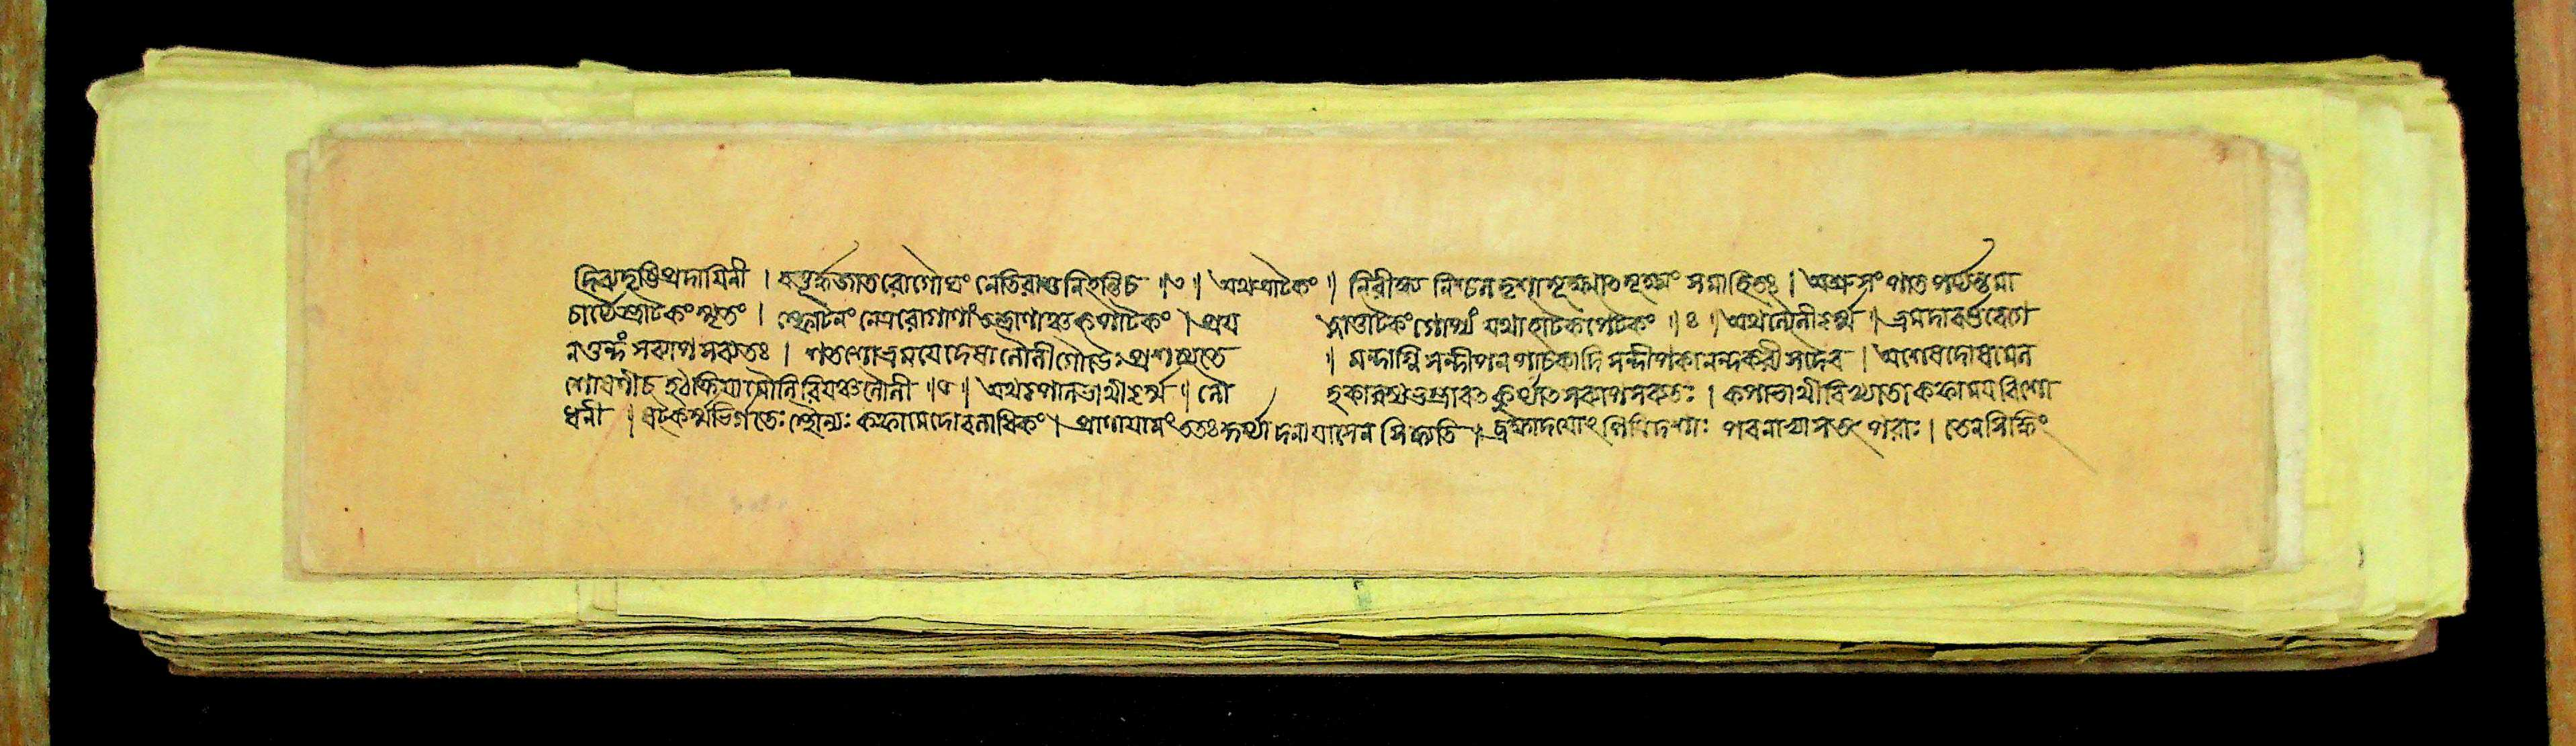 দিব্যদৃষ্টিপ্রদায়িনী । জত্রূর্দ্ধজাতরোগৌঘং নেতিরাশুনিহন্তিচ ॥৩॥ অথত্রাটকং ॥ নিরীক্ষ্য নিশ্চলদৃশা সূক্ষ্মলক্ষ্যং সমাহিতঃ । অশ্রুসংপাতপর্য্যন্তমা
চার্য্যৈস্ত্রাটকংস্মৃতং । স্ফোটনং নেত্ররোগাণাং তন্দ্রাণাঞ্চকপাটকং । প্রয ত্নাত্ত্রাটকংগোপ্যং যথাহাটকপেটকং ॥৪॥ অথলৌলীকর্ম্ম ॥ ভ্রমদাবর্ত্তবেগে
নতুন্দং সব্যাপসব্যতঃ । নতাংশোভ্রময়েদেষা লৌলীগৌডৈঃপ্রশস্যতে ॥ মন্দাগ্নি সন্দীপনপাচকাদি সন্দীপকানন্দকরীসদৈব । অশেষদোষাময়
শোষণীচ হঠক্রিয়ামৌলিরিয়ঞ্চলৌলী ॥৫॥ অথকপালভাথীকর্ম্ম ॥ লৌ হকারস্যভস্ত্রাবৎকুর্য্যাৎসব্যাপসব্যতঃ । কপালভাথীবিখ্যাতা কফাময়বিশো
ধনী ॥ ষট্কর্ম্মভির্গতেঃস্থৌল্যঃ কফামেদোবলাধিকং । প্রাণায়ামং ততঃকুর্য্যাদনায়াসেন সিদ্ধ্যতি ॥ ব্রহ্মাদয়োঽপিত্রিদশাঃ পবনাভ্যাসতৎপরাঃ । তেনসিদ্ধিং